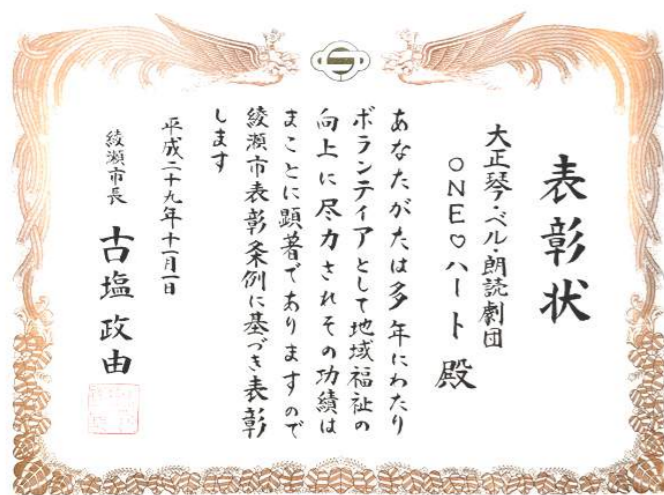 表彰状
大正琴・ベル・朗読劇団
ONE♡ハート殿
あなたがたは多年にわたり
ボランティアとして地域福祉の
向上に尽力されその功績は
まことに顕著でありますので
綾瀬市表彰条例に基づき表彰
します
平成二十九年十一月一日
綾瀬市長 古塩政由